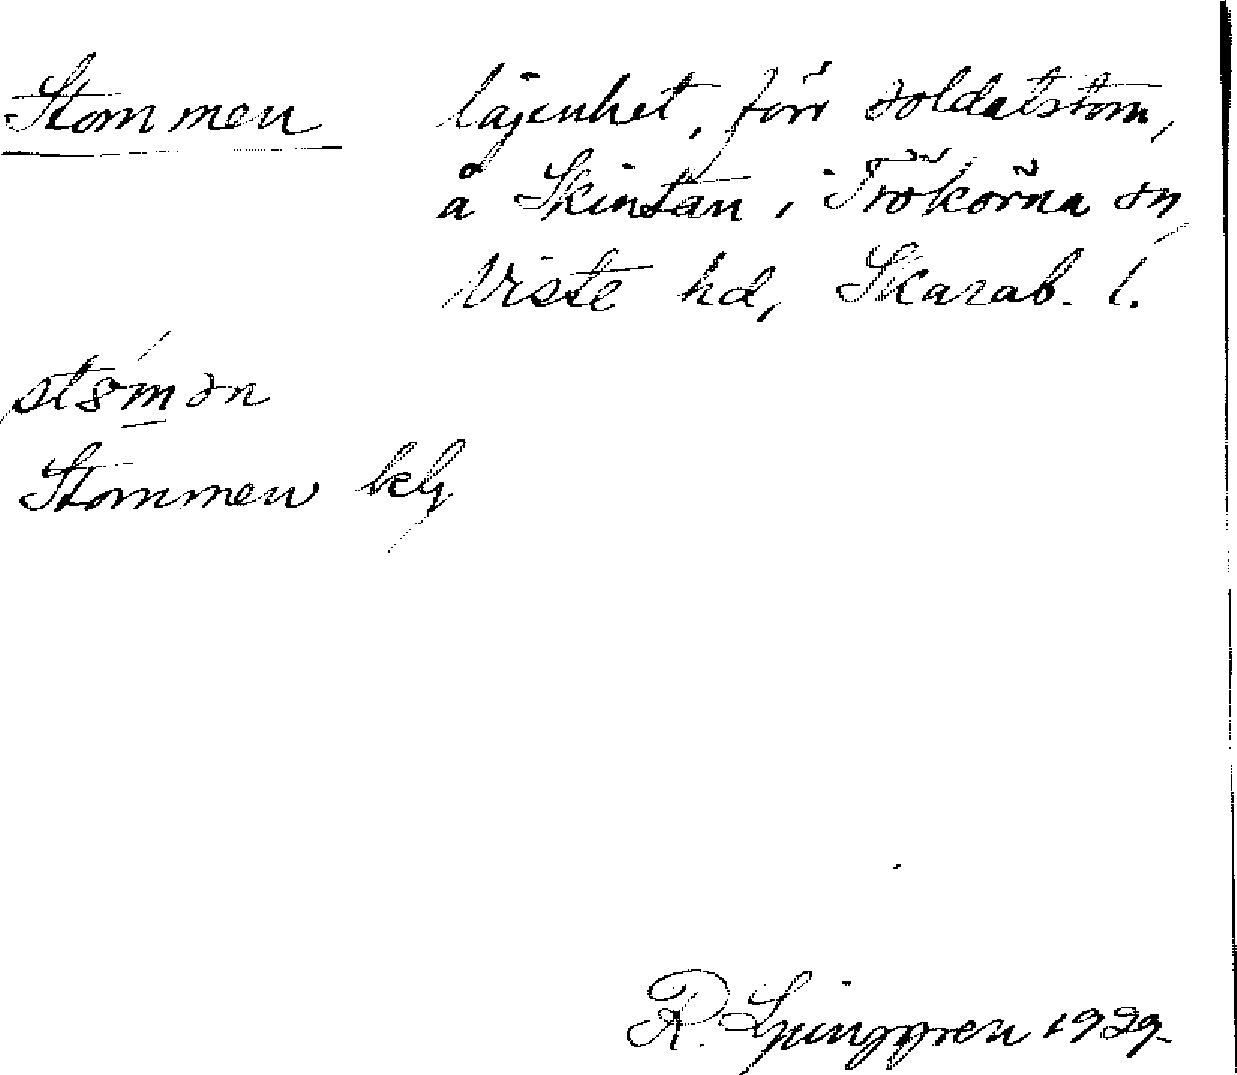 Stommen lägenhet, förr soldatstom,
å Skintan i Trökörna sn
Viste hd, Skarab. l.
Stommen
R. Ljunggren 1929